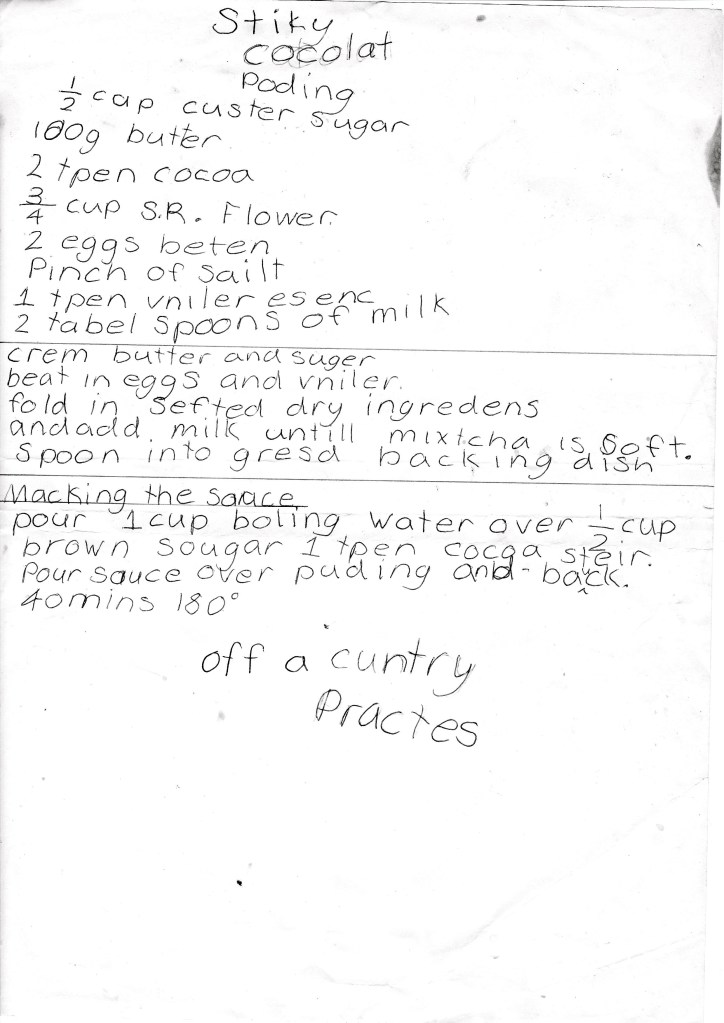 Stiky
cocolat
Poding
1/2 cap custer sugar
100g butter
2 tpen cocoa
3/4 cup S.R. Flower
2 eggs beten
Pinch of sailt
1 tpen vniler esenc
2 tabel spoons of milk
crem butter and suger
beat in eggs and vniler.
fold in sefted dry ingredens
and add milk untill mixtcha is soft.
spoon into gresd backing dish
Macking the sauce
pour 1 cup boling water over 1/2 cup
brown sougar 1 tpen cocoa steir.
Pour sauce over puding and back.
40mins 180°
off a cuntry
Practes